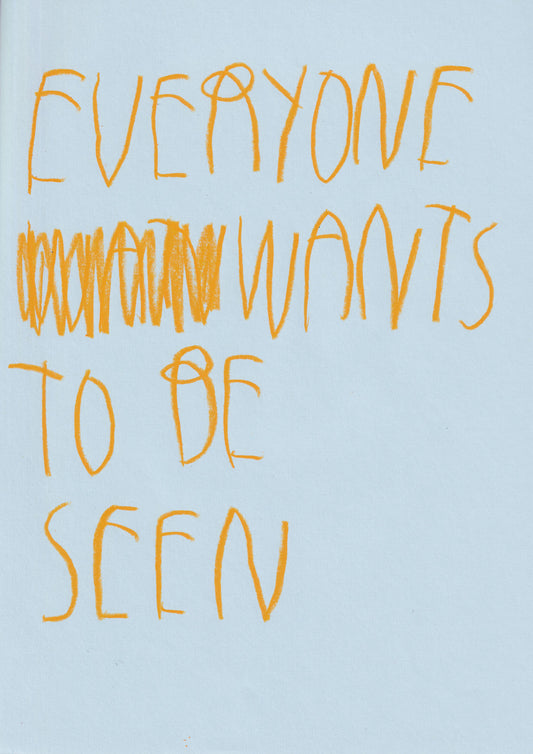 EVERYONE
WANTS
TO BE
SEEN